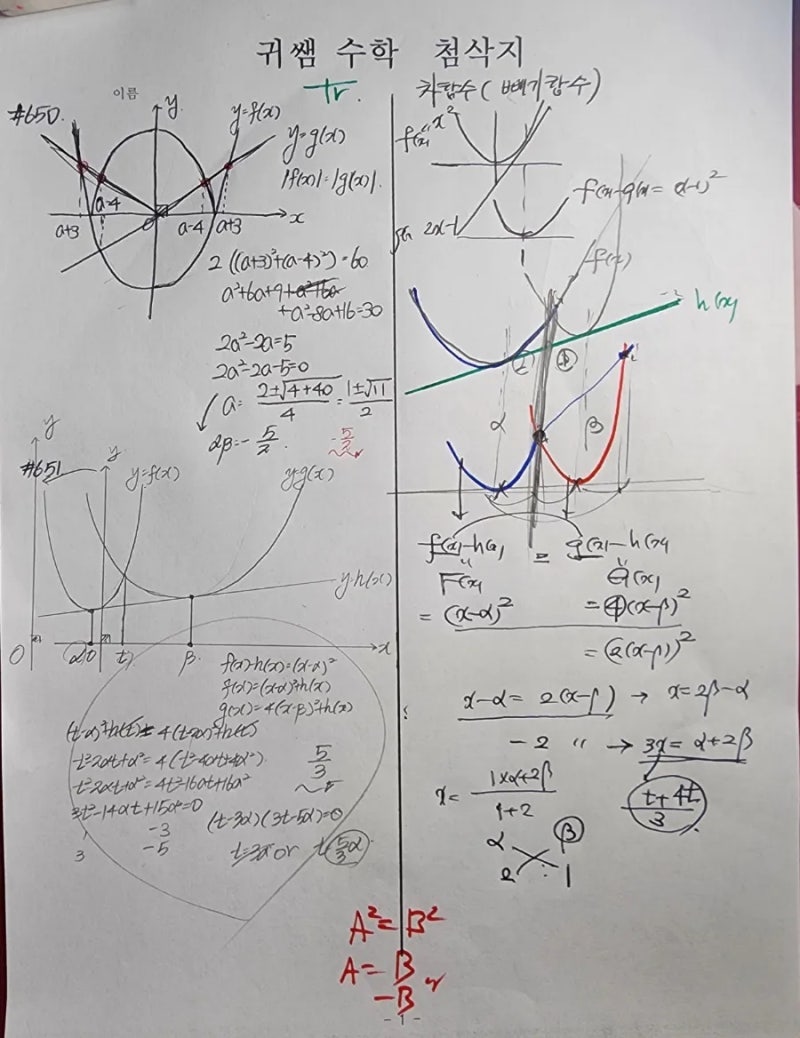 귀쌤 수학 첨삭지
이름
tr.
#650.
y
y=f(x)
y=g(x)
|f(x)|=|g(x)|.
a-4
a+3
a-4
a+3
x
2((a+3)²+(a-4)²)=60
a²+6a+9+a²+6a
+a²-8a+16=30
2a²-2a=5
2a²-2a-5=0
a= 2±√4+40 / 4 = 1±√11 / 2
αβ=-5/2.
-5/2
#651
y
y
y=f(x)
y=g(x)
y=h(x)
O
t
β
x
f(x)-h(x)=(x-α)²
f(x)=(x-α)²+h(x)
g(x)=4(x-β)²+h(x)
(t-α)²+h(t)=4(t-2α)²+h(t)
t²-2αt+α²=4(t²-4αt+4α²)
t²-2αt+α²=4t²-16αt+16α²
3t²-14αt+15α²=0
1 -3
3 -5
(t-3α)(3t-5α)=0
t=3α or t=5/3α
5/3
차함수(빼기함수)
f(x)=x²
2x-1
f(x)-g(x)=(x-1)²
1
f(x)
h(x)
1
4
α
β
f(x)-h(x) = g(x)-h(x)
F(x) G(x)
=(x-α)² =4(x-β)²
=(2(x-β))²
x-α=2(x-β) → x=2β-α
-2 〃 → 3x=α+2β
x= 1×α+2β / 1+2
t+4t / 3
α β
2 : 1
A²=B²
A=B
-B
- 1 -